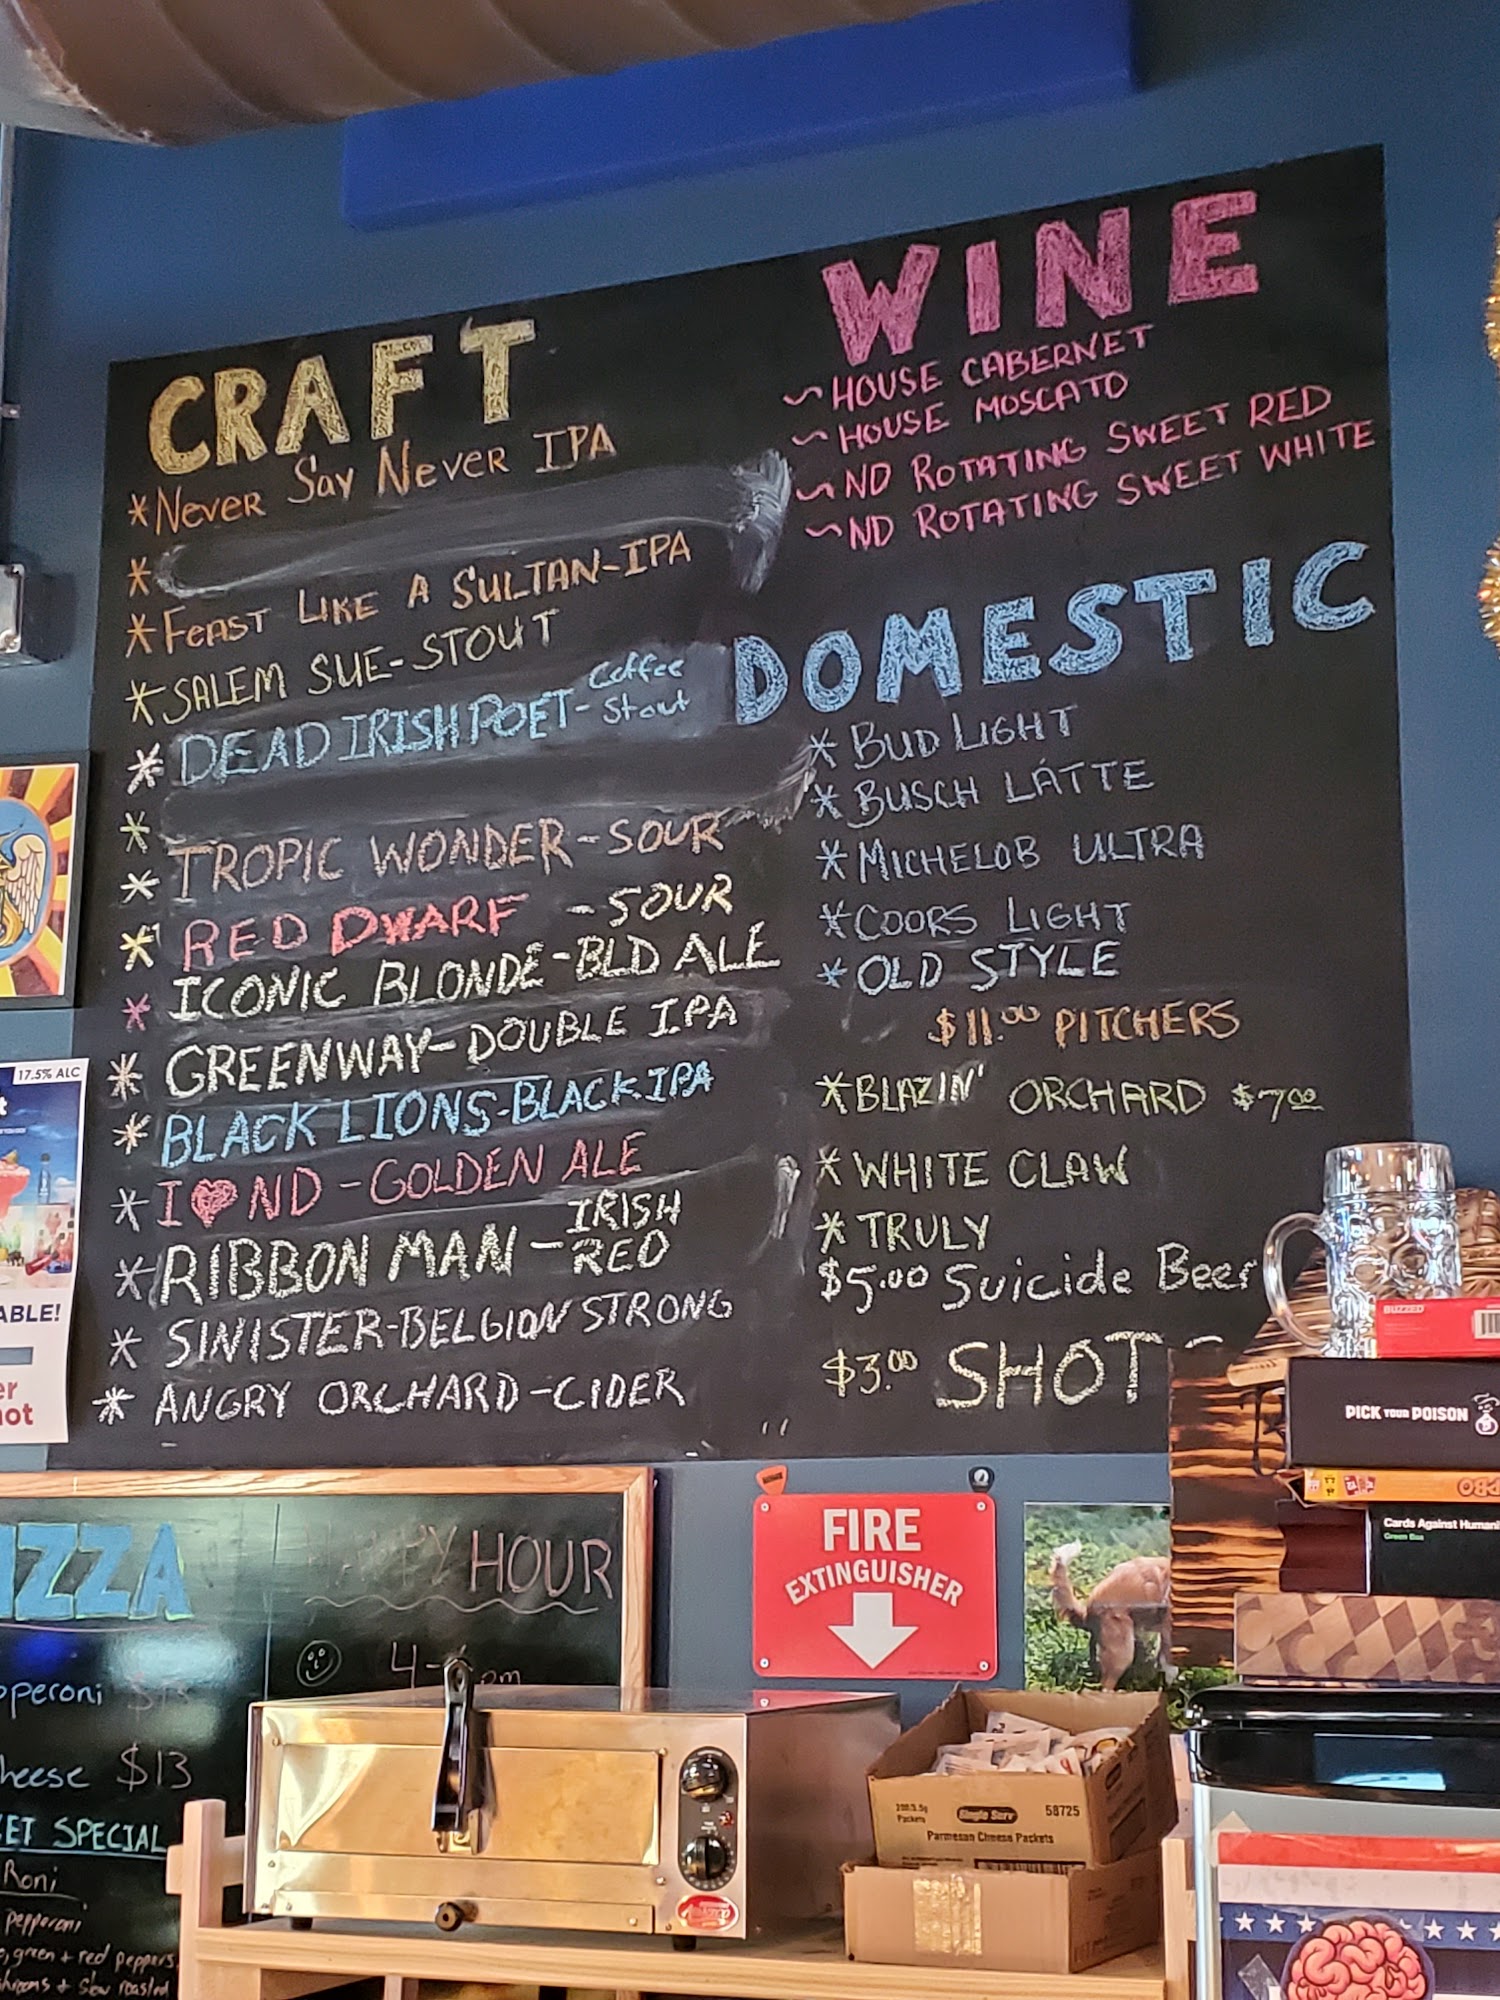 CRAFT
*Never Say Never IPA
*
*Feast Like A Sultan-IPA
*SALEM SUE-STOUT
*DEAD IRISH POET-Coffee Stout
*
*TROPIC WONDER-SOUR
*RED DWARF -SOUR
*ICONIC BLONDE-BLD ALE
*GREENWAY-DOUBLE IPA
*BLACK LIONS-BLACK IPA
*I ♥ ND-GOLDEN ALE
*RIBBON MAN-IRISH RED
*SINISTER-BELGION STRONG
*ANGRY ORCHARD-CIDER
WINE
~HOUSE CABERNET
~HOUSE MOSCATO
~ND ROTATING SWEET RED
~ND ROTATING SWEET WHITE
DOMESTIC
*BUD LIGHT
*BUSCH LÁTTE
*MICHELOB ULTRA
*COORS LIGHT
*OLD STYLE
$11.00 PITCHERS
*BLAZIN' ORCHARD $7.00
*WHITE CLAW
*TRULY
$5.00 Suicide Beer
$3.00 SHOT
17.5% ALC
ABLE!
er
hot
BUZZED
PICK YOUR POISON
Cards Against Humani
Green Box
FIRE
EXTINGUISHER
IZZA
pperoni
heese $13
ET SPECIAL
Roni
pepperoni
green + red peppers
shrooms + slow roasted
HAPPY HOUR
4-
pm
200/3.5g
Packets
Single Serv
58725
Parmesan Cheese Packets